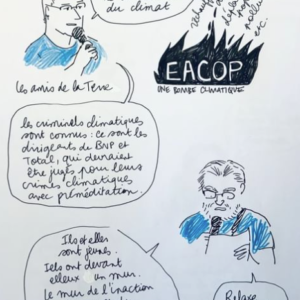 du climat
etc.
EACOP
UNE BOMBE CLIMATIQUE
Les amis de la Terre
les criminels climatiques
sont connus : ce sont les
dirigeants de BNP et
Total, qui devraient
être jugés pour leurs
crimes climatiques
avec préméditation.
Ils et elles
sont jeunes.
Iels ont devant
elleux un mur.
le mur de l'inaction
Relaxe